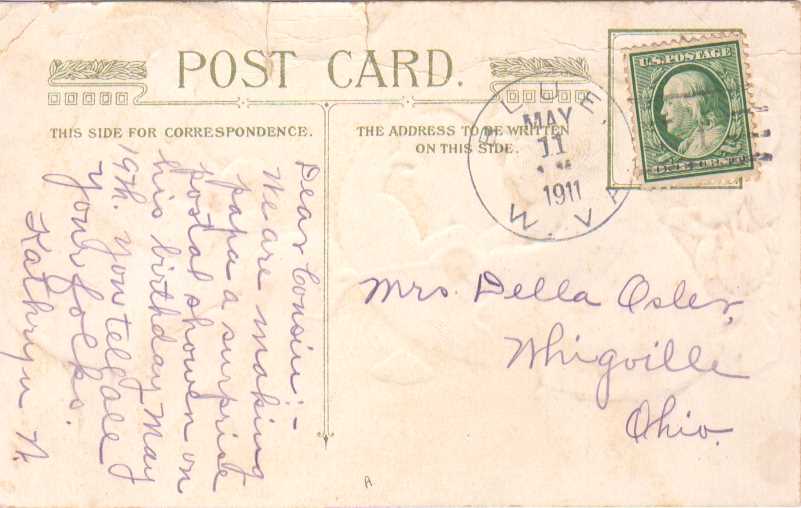 POST CARD.
THIS SIDE FOR CORRESPONDENCE.
THE ADDRESS TO BE WRITTEN
ON THIS SIDE.
BLUE.
MAY
11
1911
W. VA
U.S. POSTAGE
Dear Cousin:-
We are making
papa a surprise
postal shower on
his birthday May
19th. You tell all
your folks.
Kathryn N.
Mrs. Della Osler,
Whigville
Ohio.
A